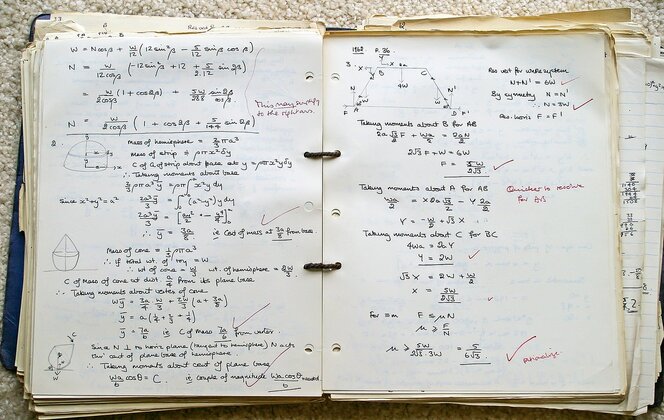 W = N cosβ + W/12 (12 sin²β - 5/12 sinβ cosβ)
N = W/12cosβ (-12 sin²β + 12 + 5/2.12 sin 2β)
= W/2cosβ (1 + cos2β) + 5W/288 sin2β/cosβ
N = W/2cosβ (1 + cos2β + 5/144 sin2β)
This may simplify
to the right ans.
2.
Mass of hemisphere = 2/3 πρa³
Mass of strip = ρπx²δy
C of G of strip about base at y = ρπx²yδy
∴ Taking moments about base
2/3 ρπa³ȳ = ρπ∫x²y dy
Since x²+y²=a²
2a³/3 ȳ = ∫(a²-y²)y dy
∴ ȳ = 3a/8 ie Cent of mass at 3a/8 from base
Mass of cone = 1/3 ρπa³
∴ if total wt. of toy = W
∴ wt of cone = W/3 wt. of hemisphere = 2W/3
C of Mass of cone at dist a/4 from its plane base
∴ Taking moments about vertex of cone
Wȳ = 3a/4 W/3 + 2W/3 (a + 3a/8)
ȳ = 7a/6 ie C of Mass 7a/6 from vertex
Since N ⊥ to horiz plane (tangent to hemisphere) N acts
thro' cent of plane base of hemisphere
∴ Taking moments about cent of plane base
Wa/6 cosθ = C. ie couple of magnitude Wa cosθ/6 needed.
1962 P. 36
3.
X
Y
B
C
4W
N
N'
F
A
D
F'
Res vert for whole system
N+N' = 6W
By symmetry N = N'
∴ N = 3W
Res. horiz F = F'
Taking moments about B for AB
2a√3/2 F + Wa/2 = 2aN/2
2√3 F + W = 6W
F = 5W/2√3
Taking moments about A for AB
Quicker to resolve
for AB
Wa/2 = X 2a√3/2 - Y 2a/2
Y = -W/2 + √3 X
Taking moments about C for BC
4Wa = 2aY
Y = 2W
√3 X = 2W + W/2
X = 5W/2√3
for F ≤ μN
μ ≥ F/N
μ ≥ 5W/2√3.3W = 5/6√3
rationalise